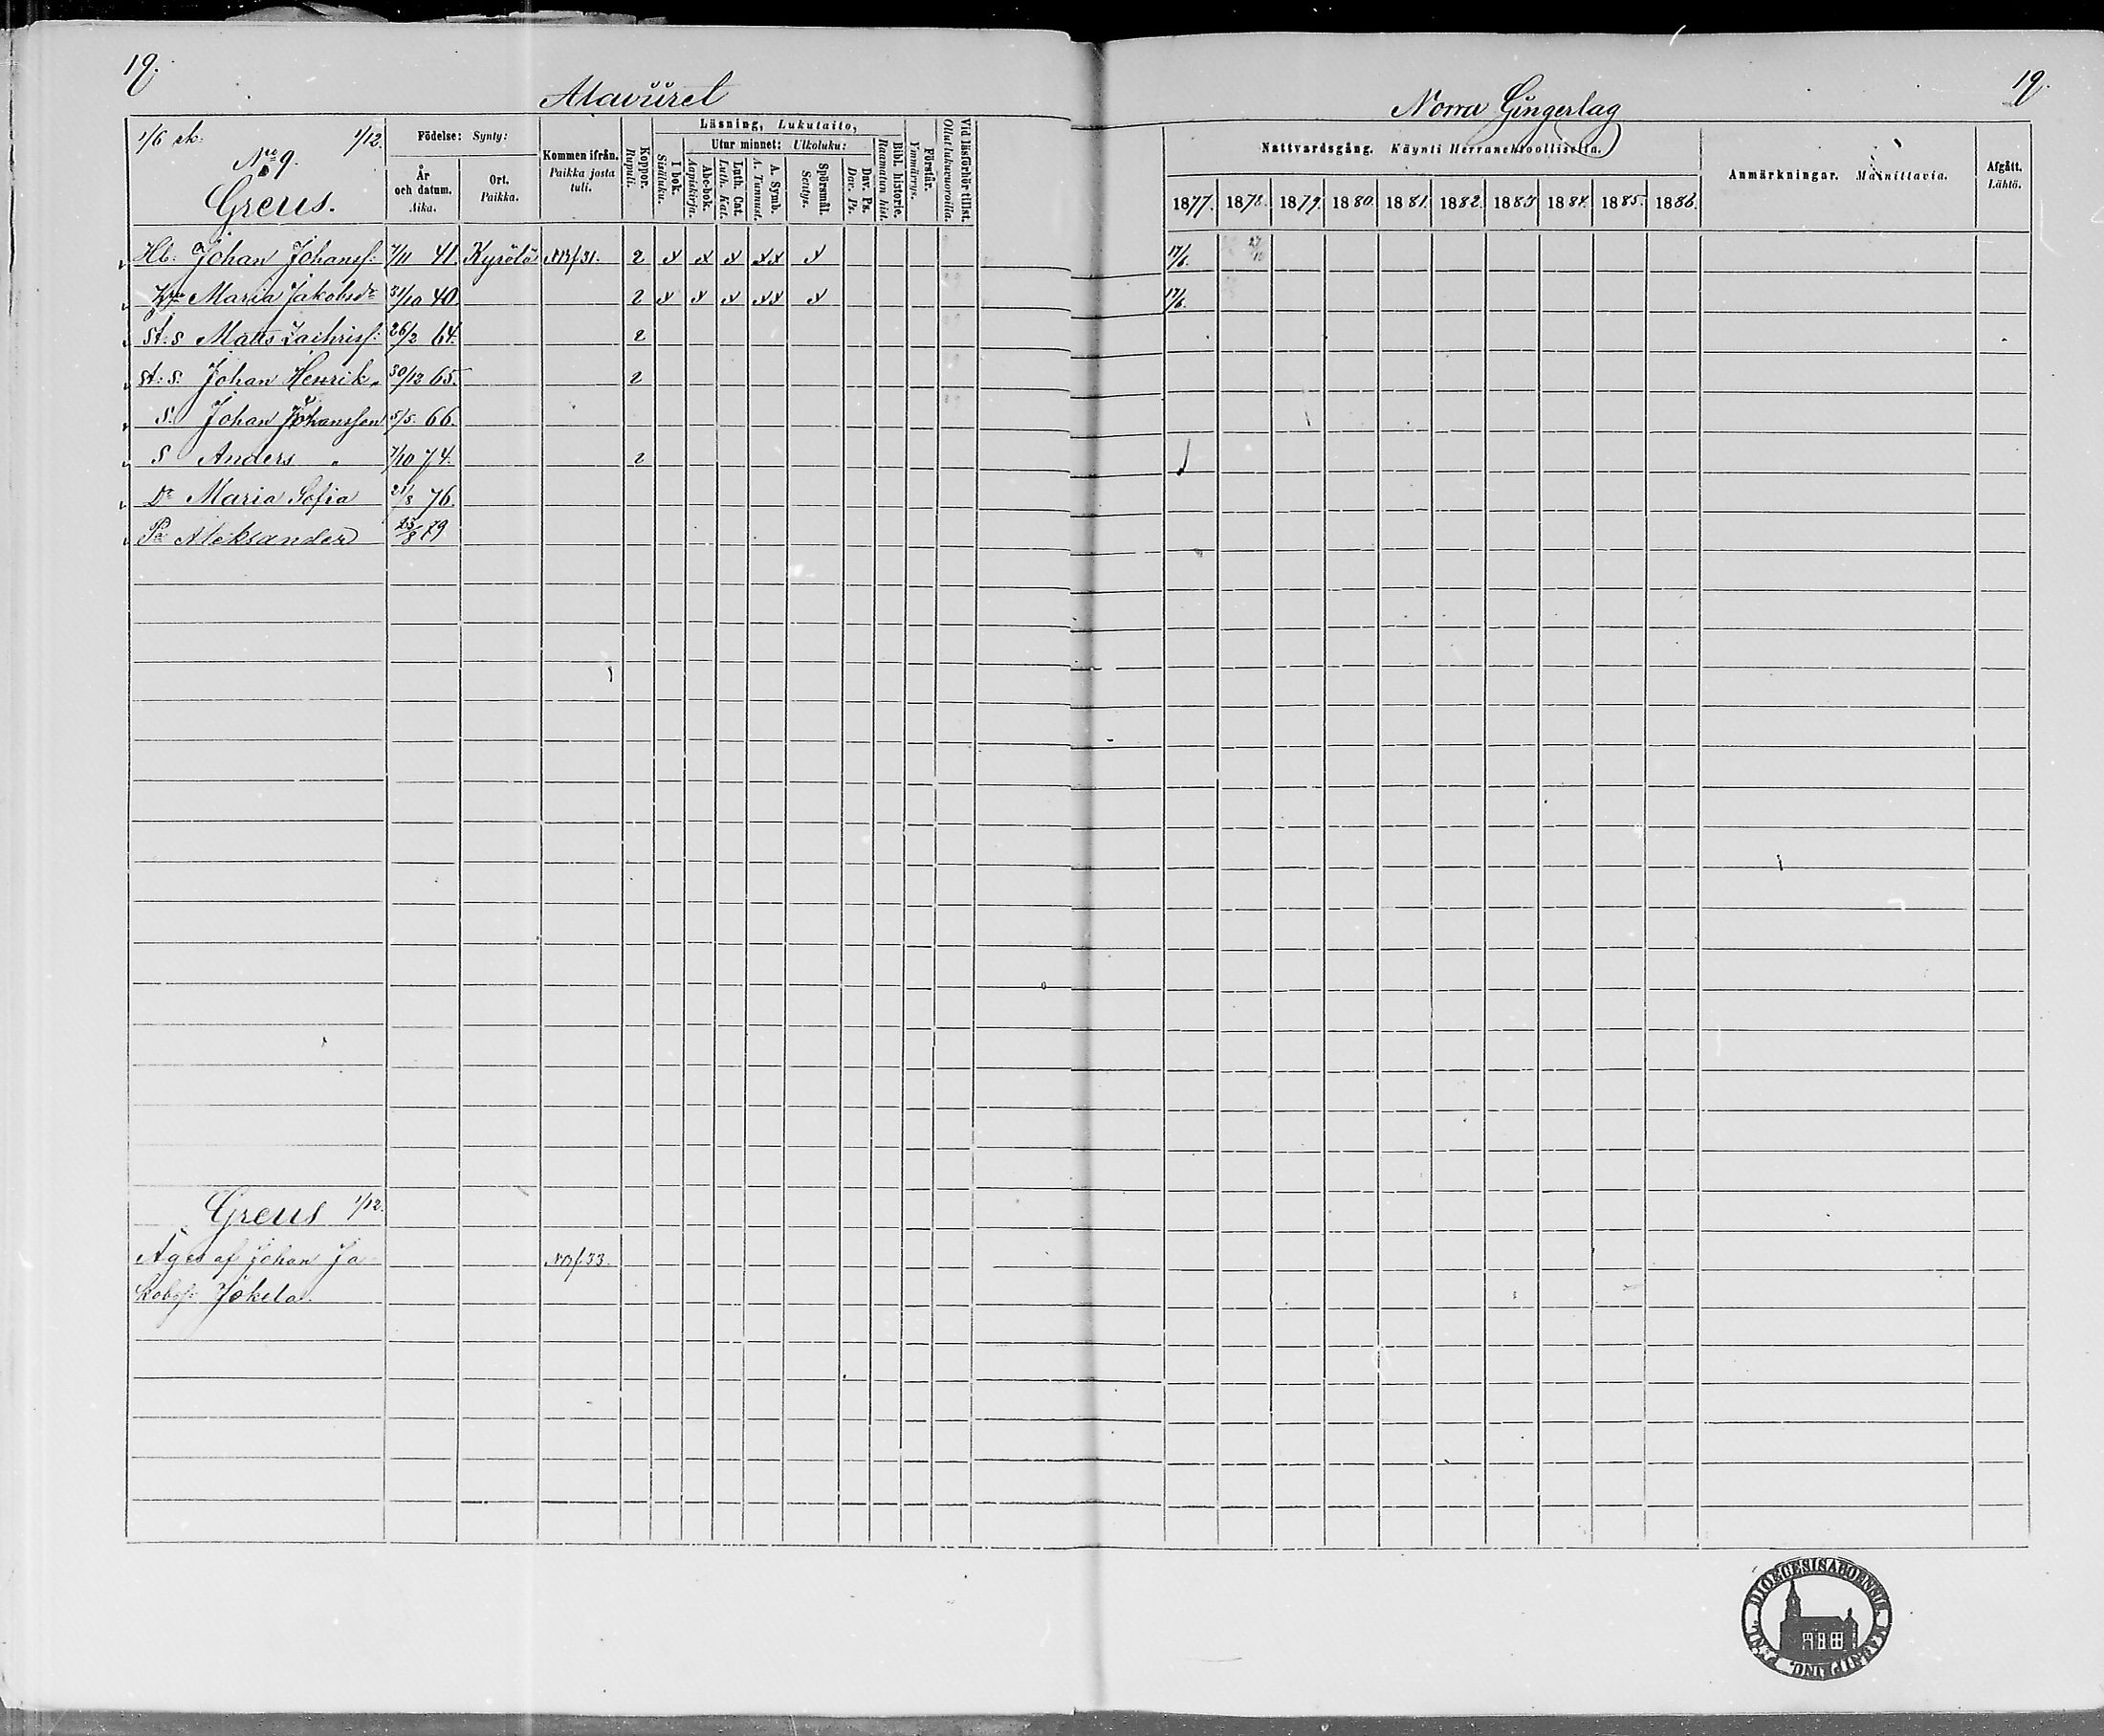 19.
Alavüret
1/6 sk. 1/12.
No 9.
Greus.
Födelse: Synty:
År och datum. Aika.
Ort. Paikka.
Kommen ifrån. Paikka josta tuli.
Koppor. Rupuli.
Läsning, Lukutaito,
I bok. Sisäluku.
Utur minnet: Ulkoluku:
Abc-bok. Aapiskirja.
Luth. Cat. Luth. Kat.
A. Symb. A. Tunnust.
Spörsmål. Seitys.
Dav. Ps. Dav. Ps.
Bibl. historie. Raamatun hist.
Förstår. Ymmärrys.
Vid läsförhör tillst. Ollut lukuvuoroilla.
Hb. Johan Johanss: 7/11 41. Kyrölä NB f 31. 2 x x x xx x
Hu Maria Jakobsdr 31/10 40 2 x x x xx x
St. S Matts Zachriss: 26/2 64. 2
St: S: Johan Henrik " 30/12 65. 2
S. Johan Johansson 5/5. 66.
S Anders " 7/10 74. 2
Dr Maria Sofia 21/8 76.
Aleksander 25/8 79
Greus 1/12.
Äges af Johan Ja- NB f 33.
kobss: Jokela.
Norra Gingerlag
19.
Nattvardsgång. Käynti Herranehtoollisella.
1877. 1878. 1879. 1880. 1881. 1882. 1883. 1884. 1885. 1886.
Anmärkningar. Mainittavia.
Afgått. Lähtö.
17/6.
17/6.
DIOECESIS ABOENSIS